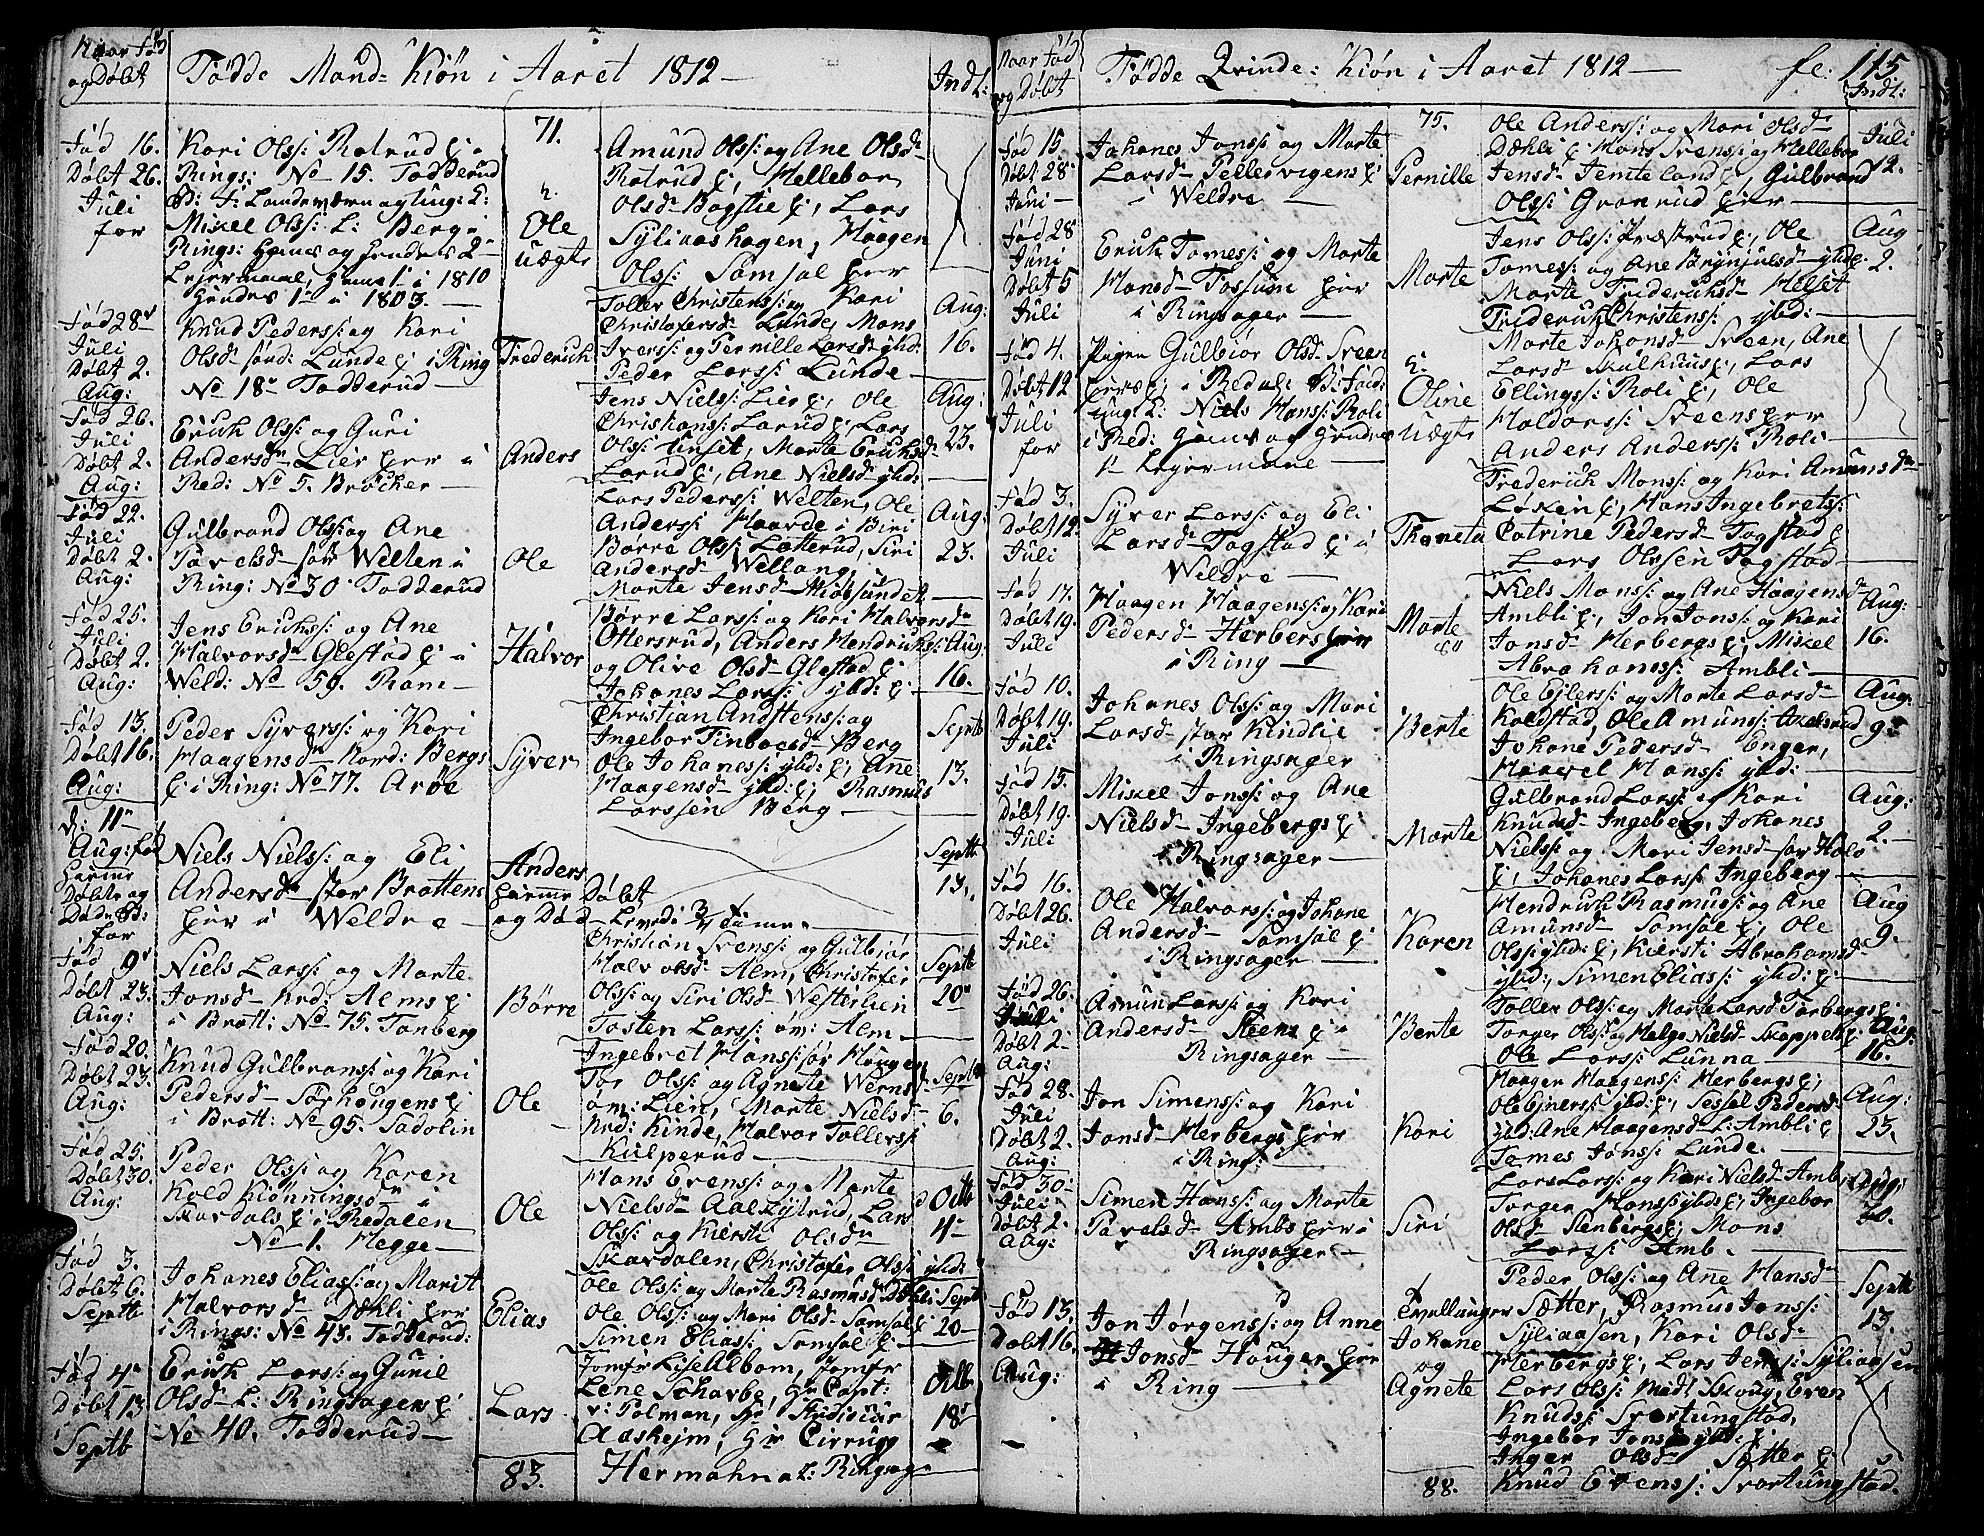 Naar Fød
og Døbt
Fødde Mand-Kiøn i Aaret 1812 —
Indl:
71.
Fød 16.
Døbt 26.
Juli
for
Kari Olss: Rotrud
Rings: No 15. Todderud
Mikel Olss: L: Berg i
Rings: Hans og Hendes 2-
Lejermaal, Hans 1 i 1810
Hendes 1- i 1803. —
Ole
uægte
Amund Olss: og Ane Olsd-
Rotrud Ej, Hellebor
Olsd- Bagstie Ej, Lars
Syliaashagen, Haagen
Olss: Samsal
Fød 28-
Juli
Døbt 2.
Aug:
Knud Peders: og Kari
Olsd- Lunde Ej i Ring
No 18- Todderud —
Frederich
Toller Christens: og Kari
Christofersd- Lunde, Mons
Iverss: og Pernille Larsd- ybd:
Peder Larss: Lunde —
Aug:
16.
Fød 26.
Juli
Døbt 2.
Aug:
Erich Olss: og Guri
Andersd- Lier
Red: No 5. Brøcher —
Anders
Jens Nielss: Lier Ej, Ole
Christians: Larud Ej, Lars
Olss: Tinset, Marte Erichsd-
Larud Ej, Ane Nielsd- ybd:
Aug:
23.
Fød 22.
Juli
Døbt 2.
Aug:
Gulbrand Olss: og Ane
Pavelsd- Welten i
Ring: No 30 Todderud
Ole
Lars Peders: Welten, Ole
Anderss: Haarde i Biri
Børre Olss: Lotterud, Siri
Andersd- Wellang,
Marte Jensd- Miøsundet
Aug:
23.
Fød 25.
Juli
Døbt 2.
Aug:
Jens Erichss: og Ane
Halvorsd- Glestad Ej i
Weld: No 59. Ram —
Halvor
Børre Larss: og Kari Halvorsd-
Ottersrud, Anders Hendrichs:
og Olive Olsd- Glestad Ej
Johanes Larss: ybd: Ej
Aug:
16.
Fød 13.
Døbt 16.
Aug:
Peder Syverss: og Kari
Haagensd- Nord: Bergs
Ej i Ring: No 77. Arøe
Syver
Christian Andstens: og
Ingebor Berg
Ole Johaness: ybd: Ej, Ane
Haagensd- ybd: Ej, Rasmus
Larssen Berg —
Septb
13.
d: 11-
Aug: Fød
hjemme
Døbt og
Død
for
Niels Nielss: og Eli
Andersd- stor Brottens
i Weldre —
Anders
hjemme Døbt
og Død — Levedi 3/4 time.
Septb
13.
Fød 9-
Døbt 23.
Aug:
Niels Larss: og Marte
Jonsd- Nrd: Alms Ej
i Brott: No 75. Tonberg
Børre
Christian Svenss: og Gulbiør
Halvorsd- Alm, Christofer
Olss: og Siri Olsd- Westerlien
Tosten Larss: Alm —
Septb
20-
Fød 20.
Døbt 23.
Aug:
Knud Gulbrans: og Kari
Pedersd- Ej
i Brott: No 95. Sadolin
Ole
Ingebret Hans: Hougen
Tor Olss: og Agnete
Lien, Marte Nielsd-
Nrd: Kinde, Halvor Tollerss:
Kulperud —
Septb
6.
Fød 25.
Døbt 30.
Aug:
Peder Olss: og Karen
Kold Kiønningsd- i
Skardals Ej i Redalen
No 1. Hegge —
Ole
Hans Evenss: og Marte
Nielsd- Lars
Olss: og Kiersti Olsd-
Skardalen, Christofer Olss: ybd:
Octb
4-
Fød 3.
Døbt 6.
Septb
Johanes Eliass: og Marit
Halvorsd- Dæhli
i Rings: No 43. Todderud:
Elias
Ole Olss: og Marte Rasmusd- Dæhli
Ole Olss: og Mari Olsd- Samsal Ej
Simen Eliass: Samsal Ej
Septb
20-
Fød 4-
Døbt 13
Septb
Erich Larss: og Gunil
Olsd- L: Ringsagers Ej
No 40. Todderud —
Lars
Jomfr Lise Albom, Jomfr
Lene Scharbo, Hr Capt:
v: Polman, Hr Studiosus
Aasheim, Hr Cirrurg
Hermahn a: Ringsag-
Octb
18-
83.
Naar Fød
og Døbt
Fødde Qvinde: Kiøn i Aaret 1812 —
fc: 115
Indl:
75.
Fød 15.
Døbt 28-
Juni —
Johanes Jonss: og Marte
Larsd- Pellervigens Ej
i Weldre —
Pernille
Ole Anderss: og Mari Olsd-
Dæhli Ej Mons Svenss: og Hellebor
Jensd- Jemteland Ej, Gulbrand
Olss: Granrud
Juli
12.
Fød 28
Juni
Døbt 5
Juli
Erich Tomess: og Marte
Hansd- Fossum
i Ringsager —
Marte
Jens Olss: Præstrud Ej, Ole
Tomess: og Ane Brynjulsd- ybd:
Marte Friderichsd- Helset
Friderich Christens: ybd: —
Aug
2.
Fød 4.
Døbt 12
Juli
for
Pigen Gulbiør Olsd- Sveen
i Redal:
ung L: Niels Hanss: Roli
i Red: Hans og Hendes
1- Lejermaae —
Oline
uægte
Marte Johansd- Sveen, Ane
Larsd- Skulhuus Ej, Lars
Ellingss: Roli Ej, Ole
Haldorss: Sveens
Anders Anderss: Roli
Fød 3.
Døbt 12.
Juli
Syver Larss: og Eli
Larsd- Fogstad Ej i
Weldre —
Thoneta
Frederich Monss: og Kari Amunsd-
Løken Ej, Hans Ingebrets:
Catrine Pedersd- Fogstad Ej
Lars Olssen Fogstad —
Fød 17.
Døbt 19.
Juli
Haagen Haagens: og Kari
Pedersd- Herbers
i Ring —
Marte
Niels Monss: og Ane Haagensd-
Ambli Ej, Jon Jonss: og Kari
Jonsd- Herbergs Ej, Mikel
Abrahamss: Ambli —
Aug:
16.
Fød 10.
Døbt 19.
Juli
Johanes Olss: og Mari
Larsd- stor Kindlie
i Ringsager
Berte
Ole Ejlerss: og Marte Larsd-
Koldstad, Ole Amunss:
Johane Pedersd- Enger,
Haavel Hanss: ybd: —
Aug:
9-
Fød 15.
Døbt 19.
Juli
Mikel Jonss: og Ane
Nielsd- Ingebergs Ej
i Ringsager —
Marte
Gulbrand Larss: og Kari
Knudsd- Ingeberg, Johanes
Nielss: og Mari Jensd-
Ej, Johanes Larss: Ingeberg —
Aug:
2-
Fød 16.
Døbt 26.
Juli
Ole Halvorss: og Johane
Andersd- Samsal Ej
i Ringsager —
Karen
Hendrich Rasmuss: og Ane
Amunsd- Samsal Ej, Ole
Olss: ybd: Ej, Kiersti Abrahamsd-
ybd:, Simen Eliass: ybd: Ej
Aug
9.
Fød 26.
Juli
Døbt 2-
Aug:
Amun Larss: og Kari
Andersd- Steens Ej i
Ringsager —
Berte
Toller Olss: og Marte Larsd- Farbergs Ej
Torger Olss: og Helge Nielsd- Skappels Ej
Ole Larss: Lunna —
Aug:
16.
Fød 28.
Juli
Døbt 2.
Aug:
Jon Simenss: og Kari
Jonsd- Herbergs
i Ring: —
Kari
Haagen Haagenss: Herbergs Ej,
Ole Ejnerss: ybd: Ej, Sessel Pedersd-
ybd: Ane Haagensd- L: Ambli Ej
Tomes Jonss: Lunde.
Aug:
23.
Fød 30:
Juli
Døbt 2.
Aug:
Simen Hanss: og Marte
Pavelsd- Ambs i
Ringsager —
Siri
Lars Larss: og Kari Nielsd- Amb,
Torger Monss: ybds Ej, Ingebor
Olsd- Stenbergs Ej, Mons
Larss: Amb. —
Aug:
30.
Fød 13.
Døbt 16.
Aug:
Jon Jørgenss: og Anne
Jonsd- Houger
i Ring —
Tvillinger
Johane
og
Agnete
Peder Olss: og Ane Hansd-
Sætter, Rasmus Jonss:
Syliaasen, Kari Olsd-
Herbergs Ej, Lars Jenss: Syliaasen
Lars Olss: Midt Skoug, Even
Knudss: Svartungstad,
Ingebor Jonsd- ybd: Ej
Inger Olsd- Sætter Ej
Knud Evenss: Svartungstad.
Septb
13.
88.